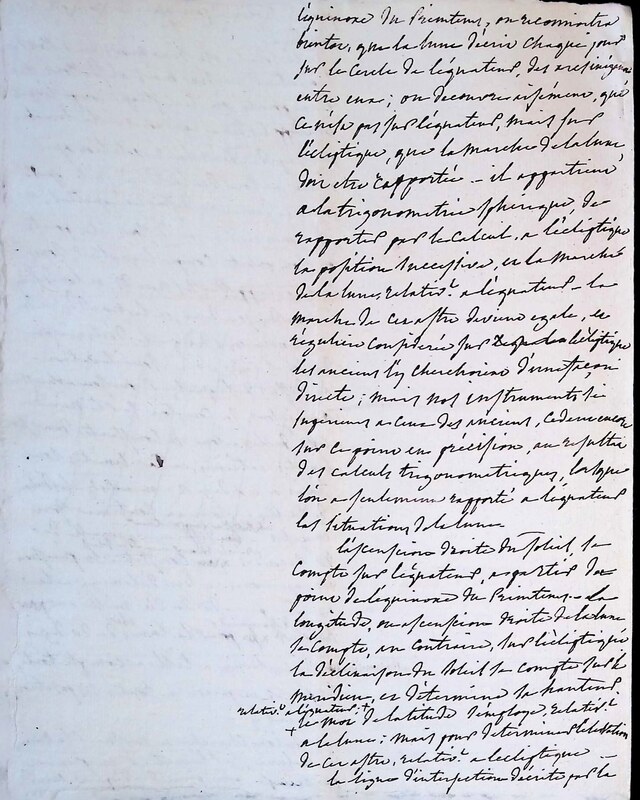 l'équinoxe du Printems, on reconnoitra
bientot, que la lune décrit chaque jour
sur le Cercle de l'équateur, des arcs inégaux
entre eux; on decouvre aisément, que
ce n'est pas sur l'équateur, mais sur
l'écliptique, que la marche de la lune
doit etre rapportée — il appartient
a la trigonometrie sphérique de
rapporter par le Calcul, a l'écliptique
la position successive, et la marche
de la lune, relativ.t a l'équateur — la
marche de cet astre devient egale, et
régulière considerée sur l'écliptique
les anciens l'y cherchoient d'une façon
directe; mais nos instruments si
superieurs a ceux des anciens, cedent encore
sur ce point en précision, au resultat
des calculs trigonometriques, lorsque
l'on a seulement rapporté a l'équateur
les situations de la lune
l'ascension droite du soleil, se
Compte sur l'équateur, a partir du
point de l'équinoxe du Printems — La
longitude, ou ascension droite de la lune
se compte, au contraire, sur l'écliptique
la déclinaison du soleil se compte sur le
meridien, et détermine sa hauteur
relativ.t a l'équateur; +
+ le mot de latitude s'employe, relativ.t
a la lune; mais pour determiner l'elevation
de cet astre, relativ.t a l'ecliptique —
la ligne d'intersection décrite par le